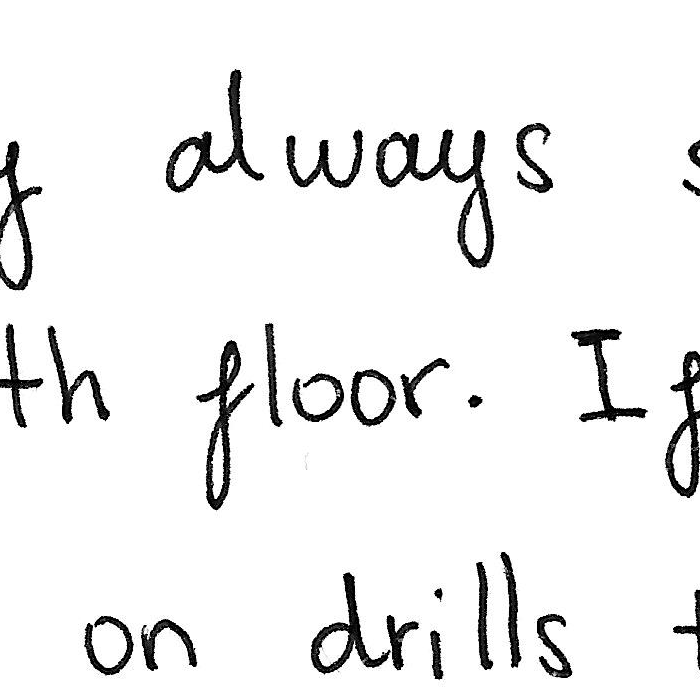 always
th floor. If
on drills